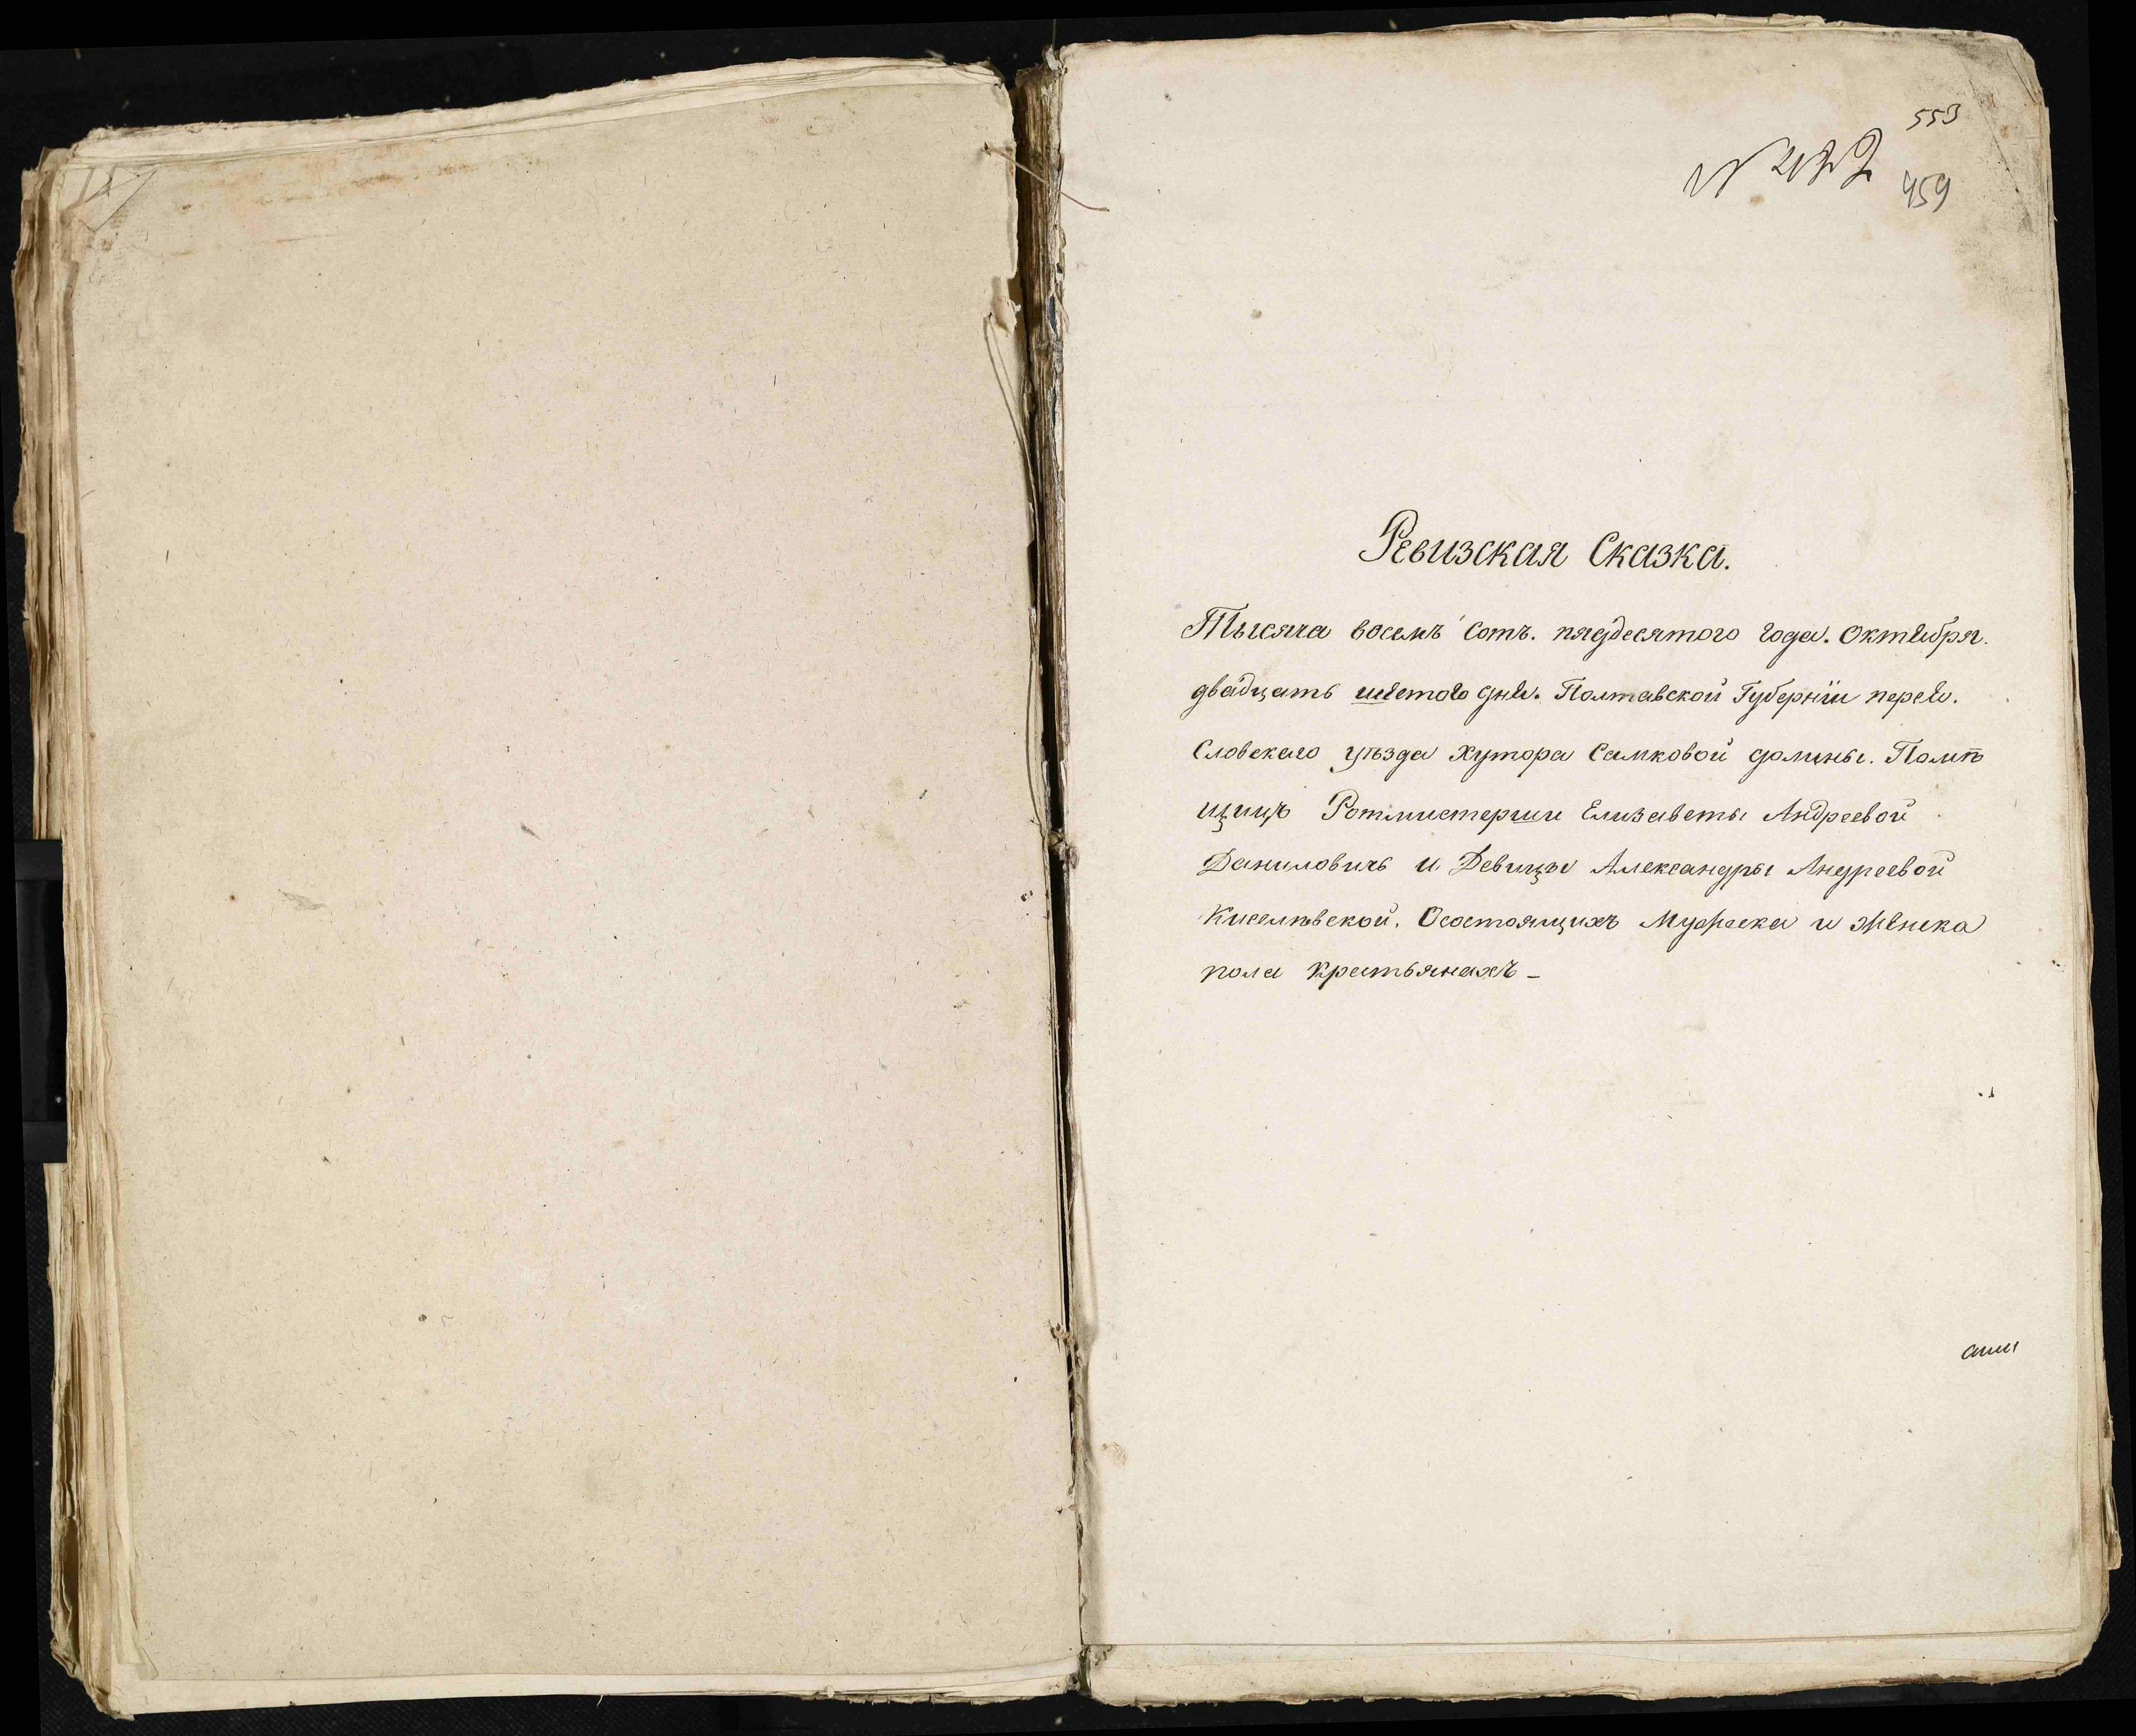 553
459
Ревизская Сказка.
Тысяча восемъ сотъ. пядесятого года. Октября.
двадцать шестого дня. Полтавской Губернїи перея.
Словскаго уѣзда Хутора Самковой долины. Помѣ
щицъ Ротмистерши Елизаветы Андреевой
Даниловичъ и Девицы Александры Андреевой
Киселѣвской. Осостоящихъ Мужеска и Женска
пола Крестьянахъ-